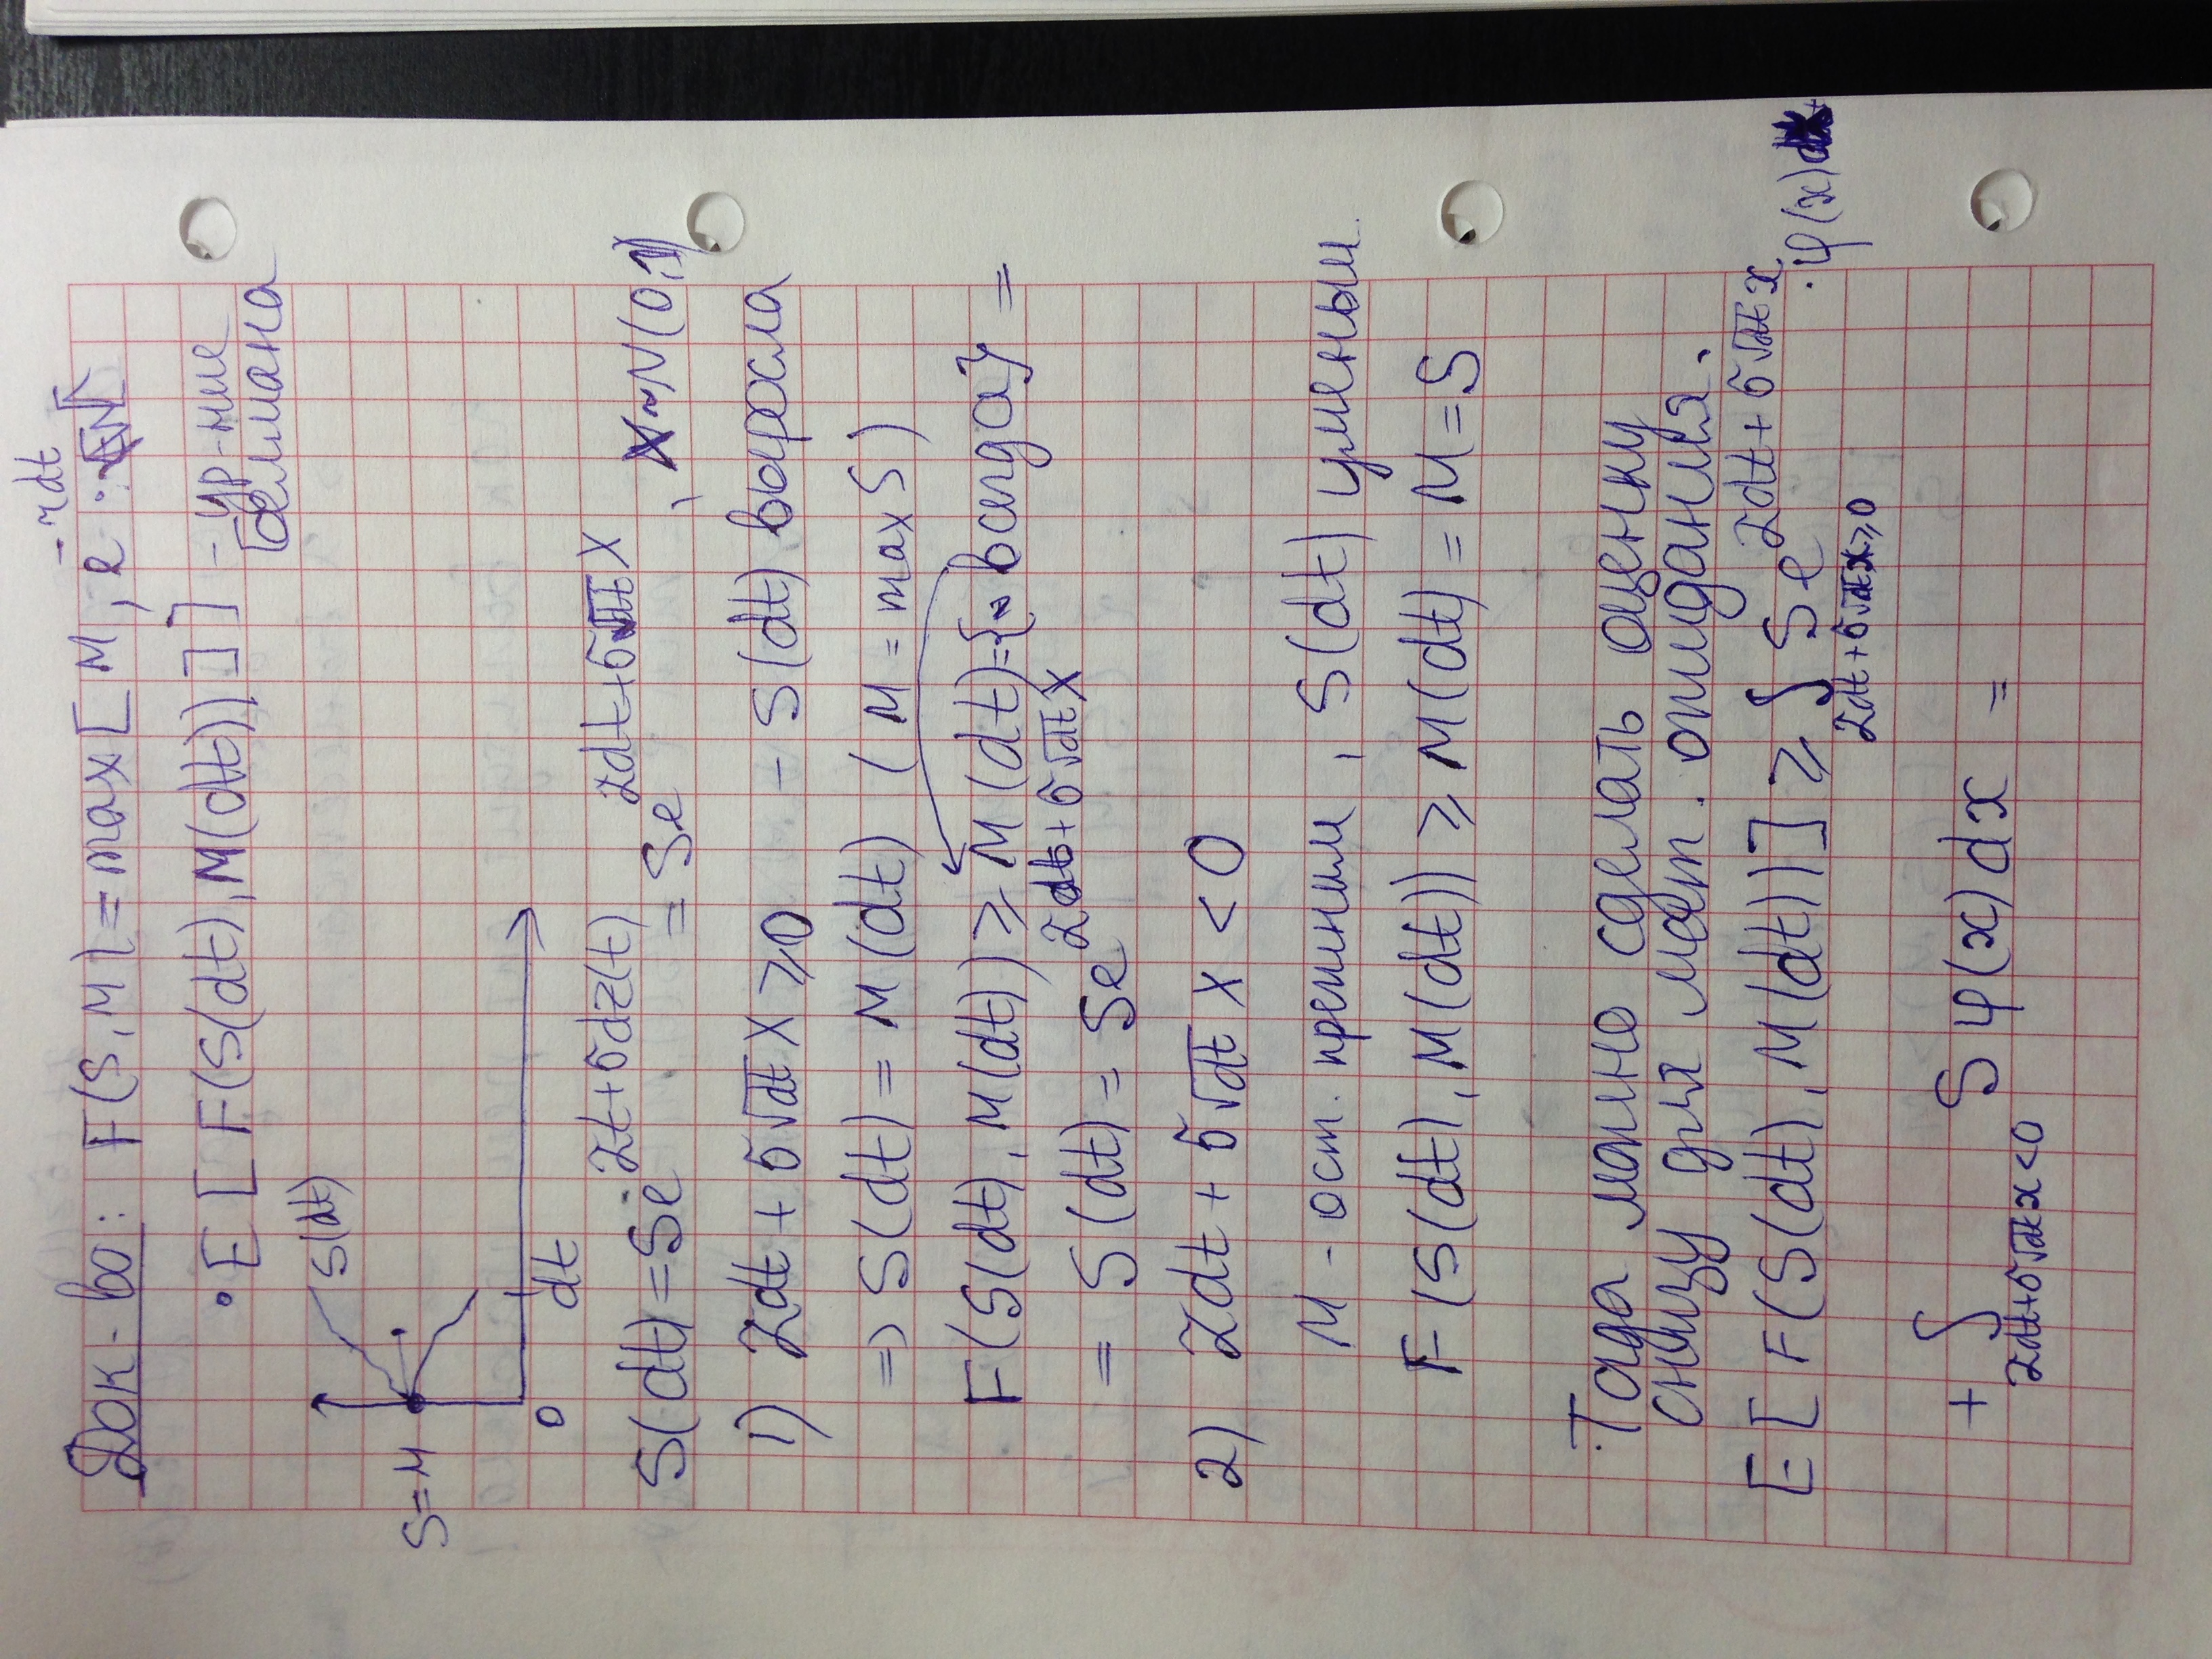 Док-во: F(S,M) = max[M; e^{-rdt} ·
· E[F(S(dt), M(dt))]] - ур-ние
Беллмана
S(dt)
S=M
0 dt
S(dt) = Se^{2t+σdz(t)} = Se^{2dt+σ√dt X}, X~N(0;1)
1) 2dt + σ√dt X ⩾ 0 - S(dt) выросла
=> S(dt) = M(dt) (M = max S)
F(S(dt), M(dt)) ⩾ M(dt) = {"всегда"} =
= S(dt) = Se^{2dt+σ√dt X}
2) 2dt + σ√dt X < 0
M - ост. прежним, S(dt) уменьш.
F(S(dt), M(dt)) ⩾ M(dt) = M = S
Тогда можно сделать оценку
снизу для мат. ожидания.
E[F(S(dt), M(dt))] ⩾ ∫_{2dt+σ√dt x⩾0} Se^{2dt+σ√dt x} · φ(x)dx
+ ∫_{2dt+σ√dt x<0} S φ(x) dx =